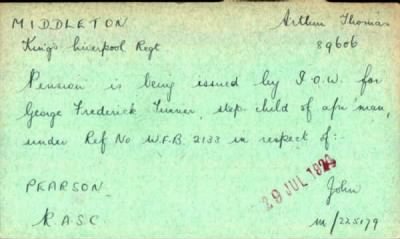 MIDDLETON Arthur Thomas
King's Liverpool Regt 89606
Pension is being issued by I.O.W. for
George Frederick Turner, step child of a/m man,
under Ref No W.F.B. 2133 in respect of:-
29 JUL 1929
PEARSON John
R.A.S.C M/225179